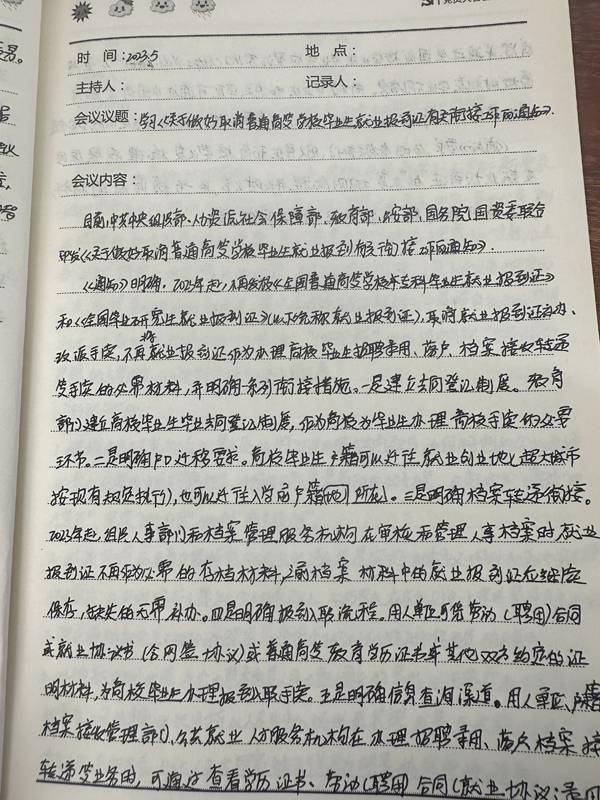 时　间：2023.5　　地　点：
主持人：　　记录人：
会议议题：学习《关于做好取消普通高等学校毕业生就业报到证有关衔接工作的通知》.
会议内容：
目前,中共中央组织部、人力资源社会保障部、教育部、公安部、国务院国资委联合
印发《关于做好取消普通高等学校毕业生就业报到有关衔接工作的通知》.
《通知》明确，2023年起,不再发放《全国普通高等学校本专科毕业生就业报到证》
和《全国毕业研究生就业报到证》(以下统称就业报到证),取消就业报到证补办、
改派手续,不再将就业报到证作为办理高校毕业生招聘录用、落户、档案接收转递
等手续的必需材料,并明确一系列衔接措施。一是建立去向登记制度。教育
部门建立高校毕业生毕业去向登记制度,作为高校为毕业生办理离校手续的必要
环节。二是明确户口迁移要求。高校毕业生户籍可以迁往就业创业地(超大城市
按现有规定执行),也可以迁往入学前户籍地所在。三是明确档案转递衔接。
2023年起,组织人事部门和档案管理服务机构在审核和管理人事档案时,就业
报到证不再作为必需的存档材料,之前档案材料中的就业报到证应继续
保存,缺失的无需补办。四是明确报到入职流程。用人单位可凭劳动(聘用)合同
或就业协议书(含网签协议)或普通高等教育学历证书或其他双方约定的证
明材料,为高校毕业生办理报到入职手续。五是明确信息查询渠道。用人单位、户籍
档案接收管理部门、公共就业人才服务机构在办理招聘录用、落户、档案接
转递等业务时,可通过查看学历证书、劳动(聘用)合同(就业协议